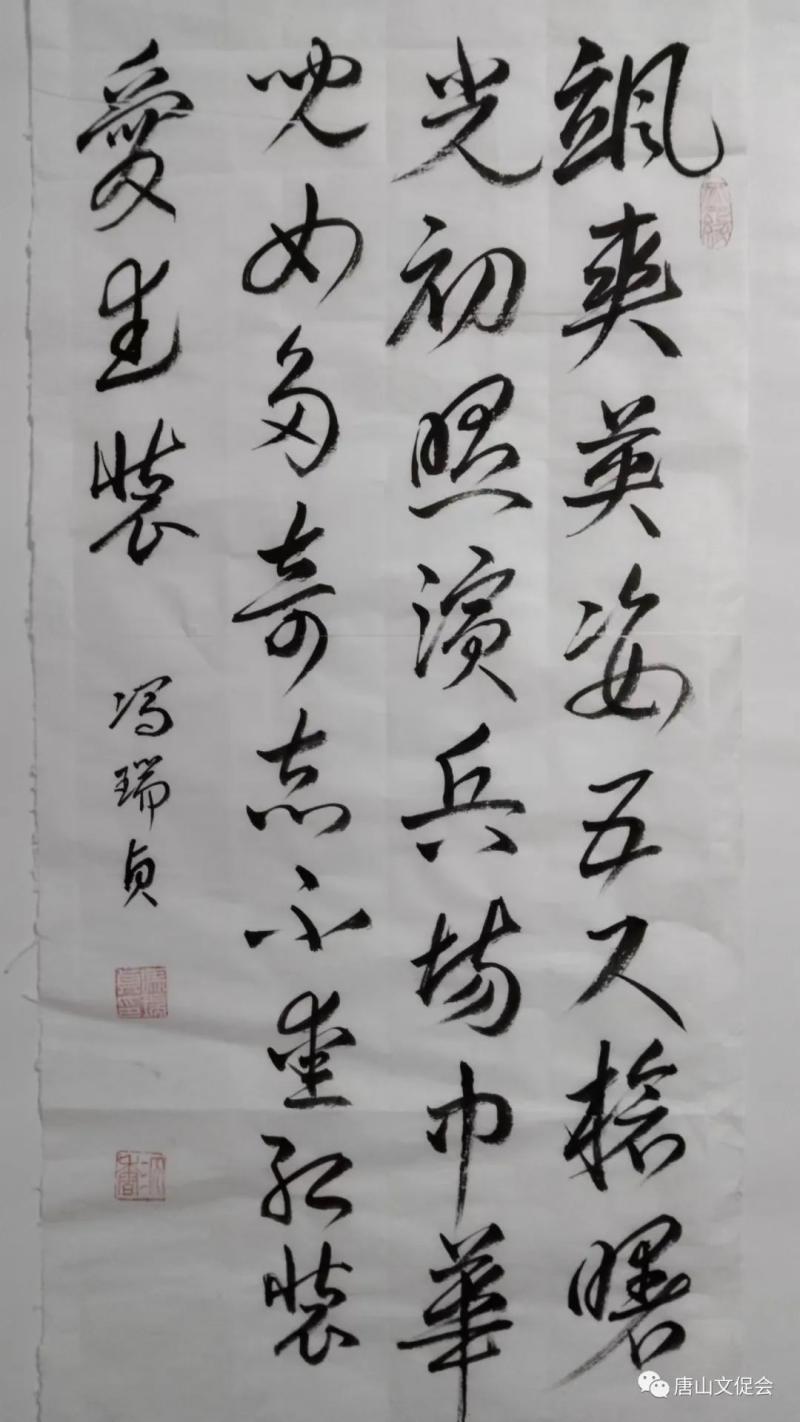 颯爽英姿五尺槍曙
光初照演兵場中華
兒女多奇志不愛紅裝
愛武裝
冯瑞贞
唐山文促会